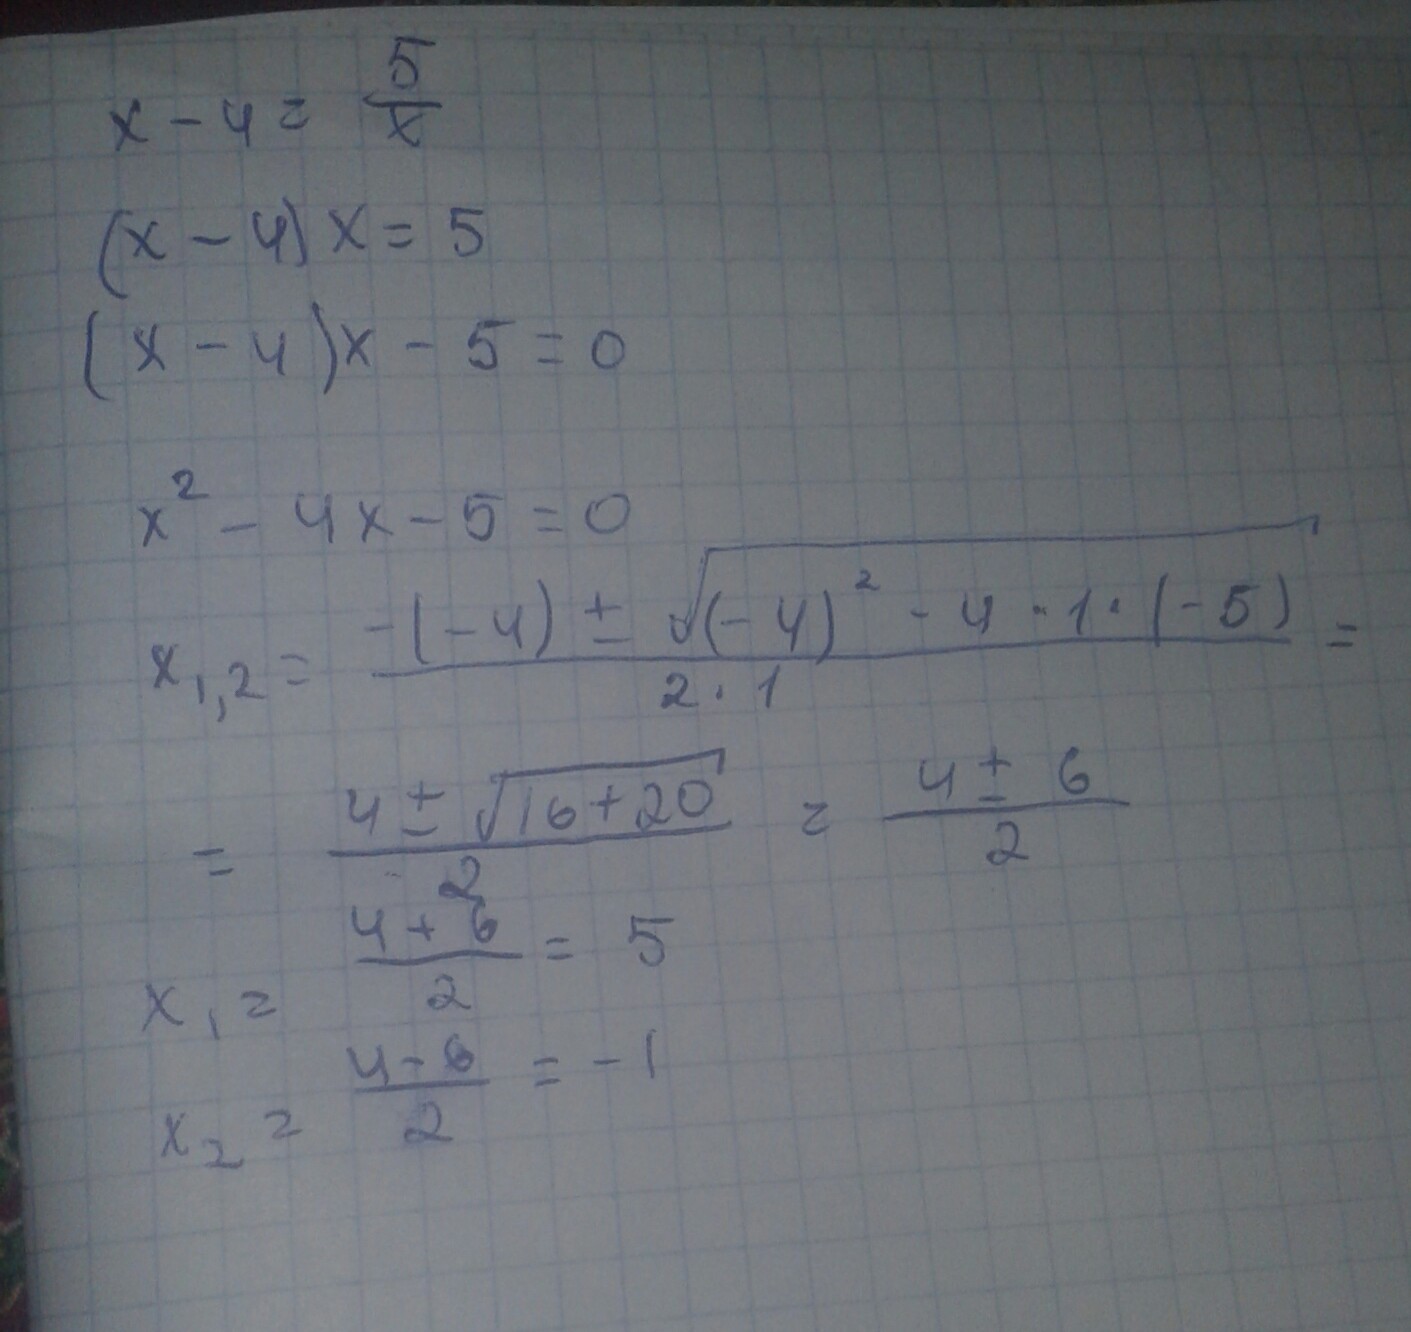 x - 4 = 5/x
(x - 4) x = 5
(x - 4)x - 5 = 0
x² - 4x - 5 = 0
x₁,₂ = (-(-4) ± √((-4)² - 4 · 1 · (-5)))/(2 · 1) =
= (4 ± √(16+20))/2 = (4 ± 6)/2
x₁ = (4 + 6)/2 = 5
x₂ = (4 - 6)/2 = -1